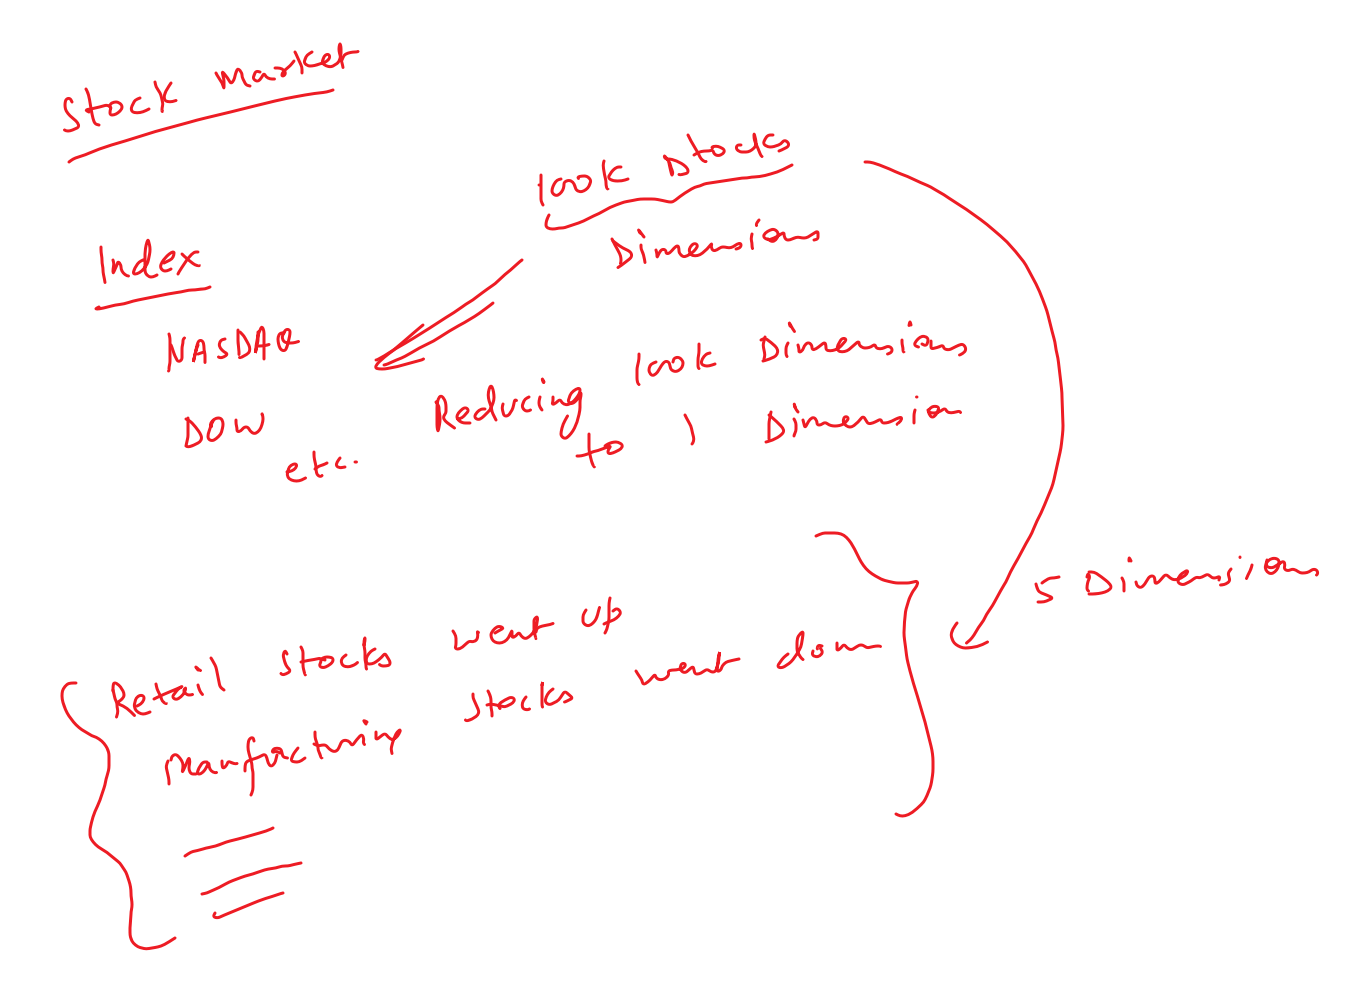 Stock market
100K Stocks
Dimensions
Index
NASDAQ
DOW
etc.
Reducing 100K Dimensions
to 1 Dimension
5 Dimensions
Retail stocks went up
Manfacturing stocks went down